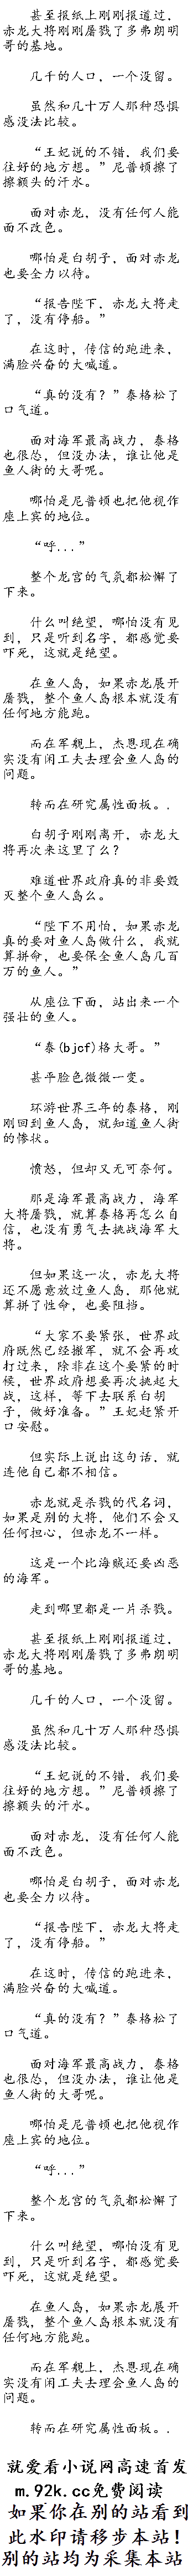 甚至报纸上刚刚报道过，
赤龙大将刚刚屠戮了多弗朗明
哥的基地。
几千的人口，一个没留。
虽然和几十万人那种恐惧
感没法比较。
“王妃说的不错，我们要
往好的地方想。”尼普顿擦了
擦额头的汗水。
面对赤龙，没有任何人能
面不改色。
哪怕是白胡子，面对赤龙
也要全力以待。
“报告陛下，赤龙大将走
了，没有停船。”
在这时，传信的跑进来，
满脸兴奋的大喊道。
“真的没有？”泰格松了
口气道。
面对海军最高战力，泰格
也很怂，但没办法，谁让他是
鱼人街的大哥呢。
哪怕是尼普顿也把他视作
座上宾的地位。
“呼...”
整个龙宫的气氛都松懈了
下来。
什么叫绝望，哪怕没有见
到，只是听到名字，都感觉要
吓死，这就是绝望。
在鱼人岛，如果赤龙展开
屠戮，整个鱼人岛根本就没有
任何地方能跑。
而在军舰上，杰恩现在确
实没有闲工夫去理会鱼人岛的
问题。
转而在研究属性面板。.
白胡子刚刚离开，赤龙大
将再次来这里了么？
难道世界政府真的非要毁
灭整个鱼人岛么。
“陛下不用怕，如果赤龙
真的要对鱼人岛做什么，我就
算拼命，也要保全鱼人岛几百
万的鱼人。”
从座位下面，站出来一个
强壮的鱼人。
“泰(bjcf)格大哥。”
甚平脸色微微一变。
环游世界三年的泰格，刚
刚回到鱼人岛，就知道鱼人街
的惨状。
愤怒，但却又无可奈何。
那是海军最高战力，海军
大将屠戮，就算泰格再怎么自
信，也没有勇气去挑战海军大
将。
但如果这一次，赤龙大将
还不愿意放过鱼人岛，那他就
算拼了性命，也要阻挡。
“大家不要紧张，世界政
府既然已经搬军，就不会再攻
打过来，除非在这个要紧的时
候，世界政府想要再次挑起大
战，这样，等下去联系白胡
子，做好准备。”王妃赶紧开
口安慰。
但实际上说出这句话，就
连他自己都不相信。
赤龙就是杀戮的代名词，
如果是别的大将，他们不会又
任何担心，但赤龙不一样。
这是一个比海贼还要凶恶
的海军。
走到哪里都是一片杀戮。
甚至报纸上刚刚报道过，
赤龙大将刚刚屠戮了多弗朗明
哥的基地。
几千的人口，一个没留。
虽然和几十万人那种恐惧
感没法比较。
“王妃说的不错，我们要
往好的地方想。”尼普顿擦了
擦额头的汗水。
面对赤龙，没有任何人能
面不改色。
哪怕是白胡子，面对赤龙
也要全力以待。
“报告陛下，赤龙大将走
了，没有停船。”
在这时，传信的跑进来，
满脸兴奋的大喊道。
“真的没有？”泰格松了
口气道。
面对海军最高战力，泰格
也很怂，但没办法，谁让他是
鱼人街的大哥呢。
哪怕是尼普顿也把他视作
座上宾的地位。
“呼...”
整个龙宫的气氛都松懈了
下来。
什么叫绝望，哪怕没有见
到，只是听到名字，都感觉要
吓死，这就是绝望。
在鱼人岛，如果赤龙展开
屠戮，整个鱼人岛根本就没有
任何地方能跑。
而在军舰上，杰恩现在确
实没有闲工夫去理会鱼人岛的
问题。
转而在研究属性面板。.
就爱看小说网高速首发
m.92k.cc免费阅读
如果你在别的站看到
此水印请移步本站！
别的站均为采集本站